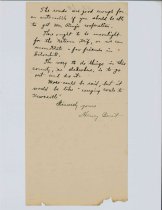 The roads are good enough for
an automobile if you should be able
to get Mr. 
This ought to be 
for the return trip, or we can
 for friends in a
The way to do things in this
county, as elsewhere, is to go
out and do it.
 could be said, but it
would be like "carrying coals to
Newcastle".
 yours
Henry